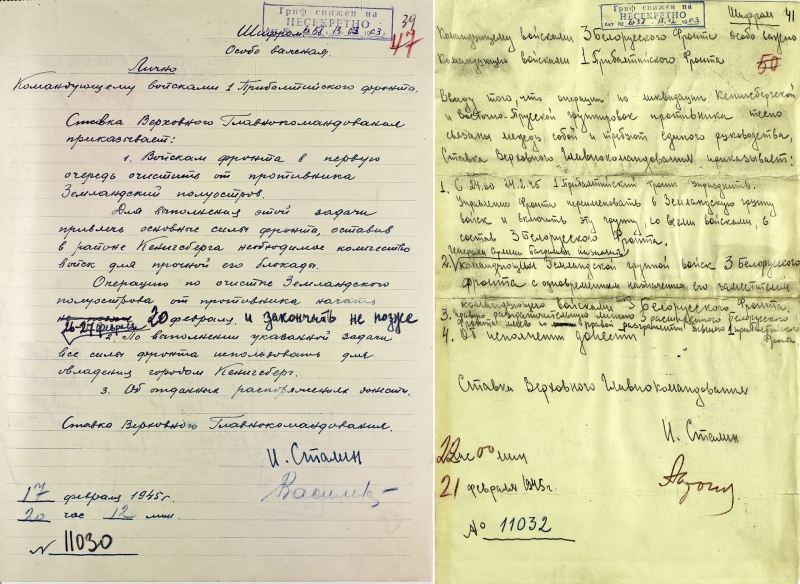 Гриф снижен на
НЕСЕКРЕТНО
39
47
Шифром
Особо важная.
Лично
Командующему войсками 1 Прибалтийского фронта.
Ставка Верховного Главнокомандования
приказывает:
1. Войскам фронта в первую
очередь очистить от противника
Земландский полуостров.
Для выполнения этой задачи
привлечь основные силы фронта, оставив
в районе Кенигсберга необходимое количество
войск для прочной его блокады.
Операцию по очистке Земландского
полуострова от противника начать
20 февраля и закончить не позже
26-27 февраля
2. По выполнении указанной задачи
все силы фронта использовать для
овладения городом Кенигсберг.
3. Об отданных распоряжениях донести.
Ставка Верховного Главнокомандования.
И. Сталин
17 февраля 1945г.
20 час 12 мин.
N 11030
Гриф снижен на
НЕСЕКРЕТНО
Шифром 41
Командующему войсками 3 Белорусского Фронта особо важно
Командующему войсками 1 Прибалтийского Фронта
50
Ввиду того, что операции по ликвидации Кенигсбергской
и Восточно-Прусской группировок противника тесно
связаны между собой и требуют единого руководства,
Ставка Верховного Главнокомандования приказывает:
1. С 24.00 24.2.45 1 Прибалтийский фронт упразднить.
Управление фронта переименовать в Земландскую группу
войск и включить эту группу, со всеми войсками, в
состав 3 Белорусского Фронта.
Генерала армии Баграмяна назначить
2. командующим Земландской группой войск 3 Белорусского
фронта с одновременным назначением его заместителем
командующего войсками 3 Белорусского Фронта.
3. правую разграничительную линию 3 Белорусского
фронта
4. Об исполнении донести.
Ставка Верховного Главнокомандования
И. Сталин
22 час 00 мин
21 февраля 1945г.
№ 11032